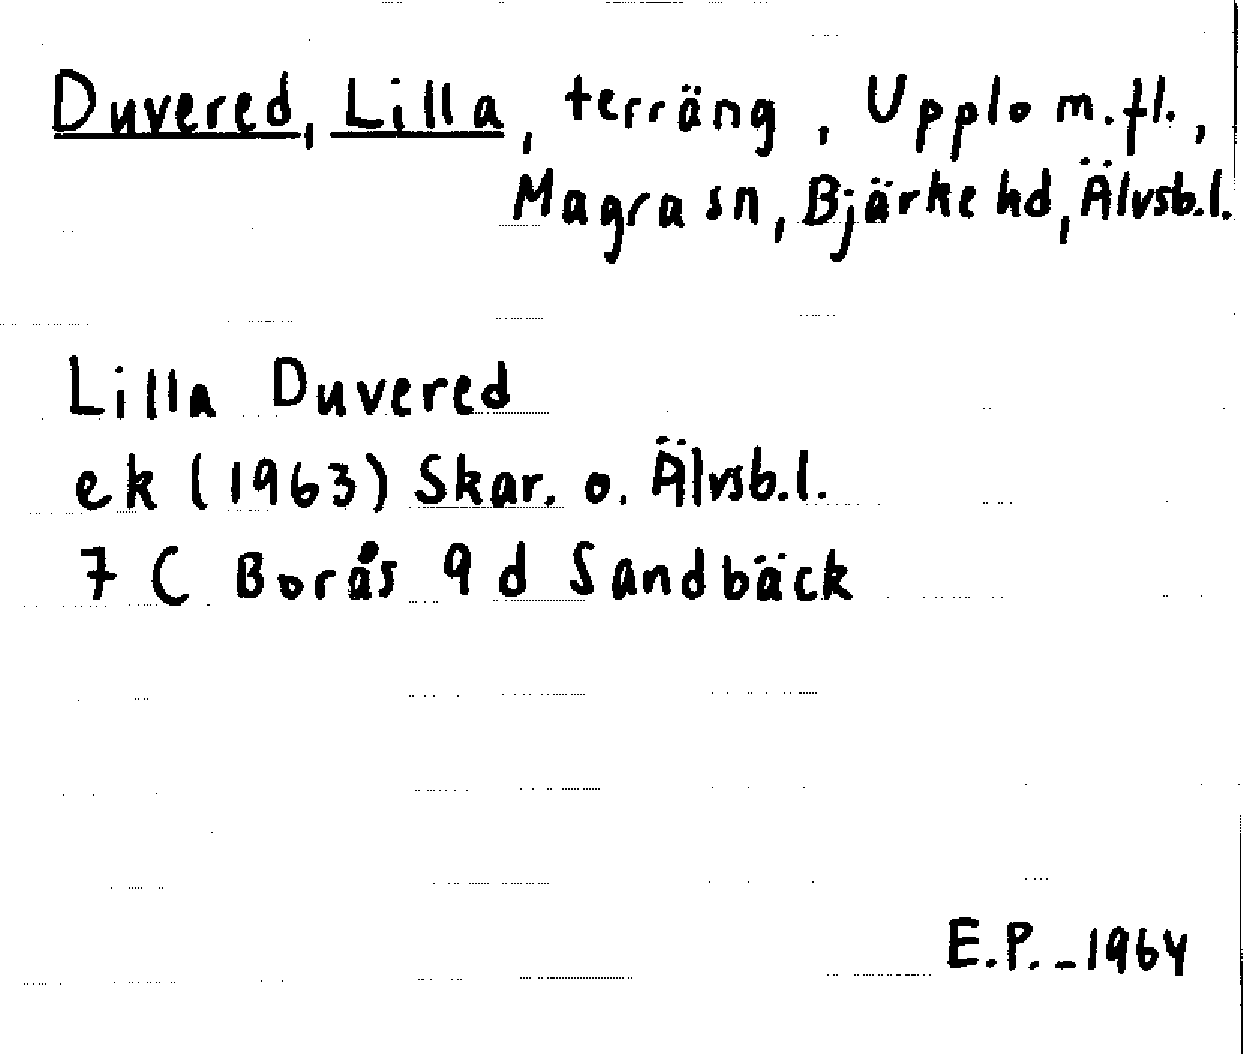 Duvered, Lilla, terräng, Upplo m.fl.,
Magra sn, Bjärke hd, Älvsb.l.
Lilla Duvered
ek (1963) Skar. o. Älvsb.l.
7 C Borås 9 d Sandbäck
E.P. - 1964